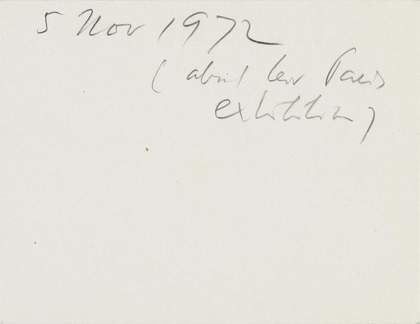 5 Nov 1972
(about her Paris
exhibition)